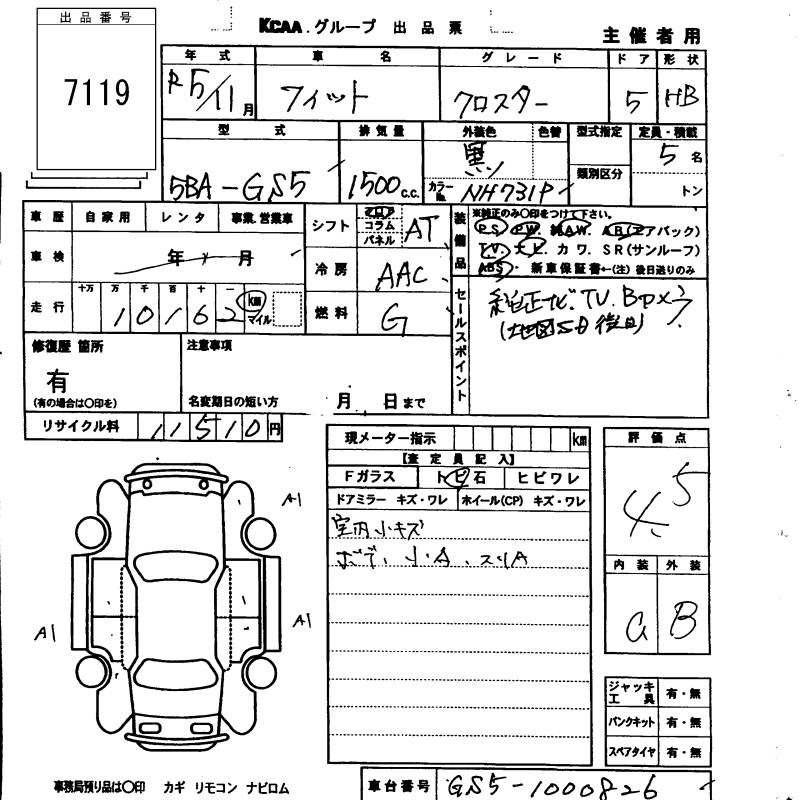 出品番号
7119
KCAA.グループ 出品票
主催者用
年式 車名 グレード ドア 形状
R5/11月 フィット クロスター 5 HB
型式 排気量 外装色 色替 型式指定 定員・積載
5BA-GS5 1500c.c. 黒 カラーNo. NH731P 類別区分 5名
トン
車歴 自家用 レンタ 事業.営業車
シフト フロア コラム パネル AT
装備品 ※純正のみ○印をつけて下さい。
PS. PW. 純AW. AB(エアバック)
車検 年 月
冷房 AAC
TV. ナビ. カワ. SR(サンルーフ)
ABS・ 新車保証書←(注)後日送りのみ
走行 十万 万 千 百 十 一 km マイル
10162
燃料 G
セールスポイント
純正ナビ.TV.Bカメラ
(地図SD後日)
修復歴 箇所
有
(有の場合は○印を)
注意事項
名変期日の短い方 月 日まで
リサイクル料 11510円
現メーター指示 km
評価点
4.5
【査定員記入】
Fガラス トビ石 ヒビワレ
ドアミラー キズ・ワレ ホイール(CP) キズ・ワレ
室内小キズ
ボデー小A、スリA
内装 外装
B
A1
A1
A1
ジャッキ工具 有・無
パンクキット 有・無
スペアタイヤ 有・無
事務局預り品は○印 カギ リモコン ナビロム
車台番号 GS5-1000826